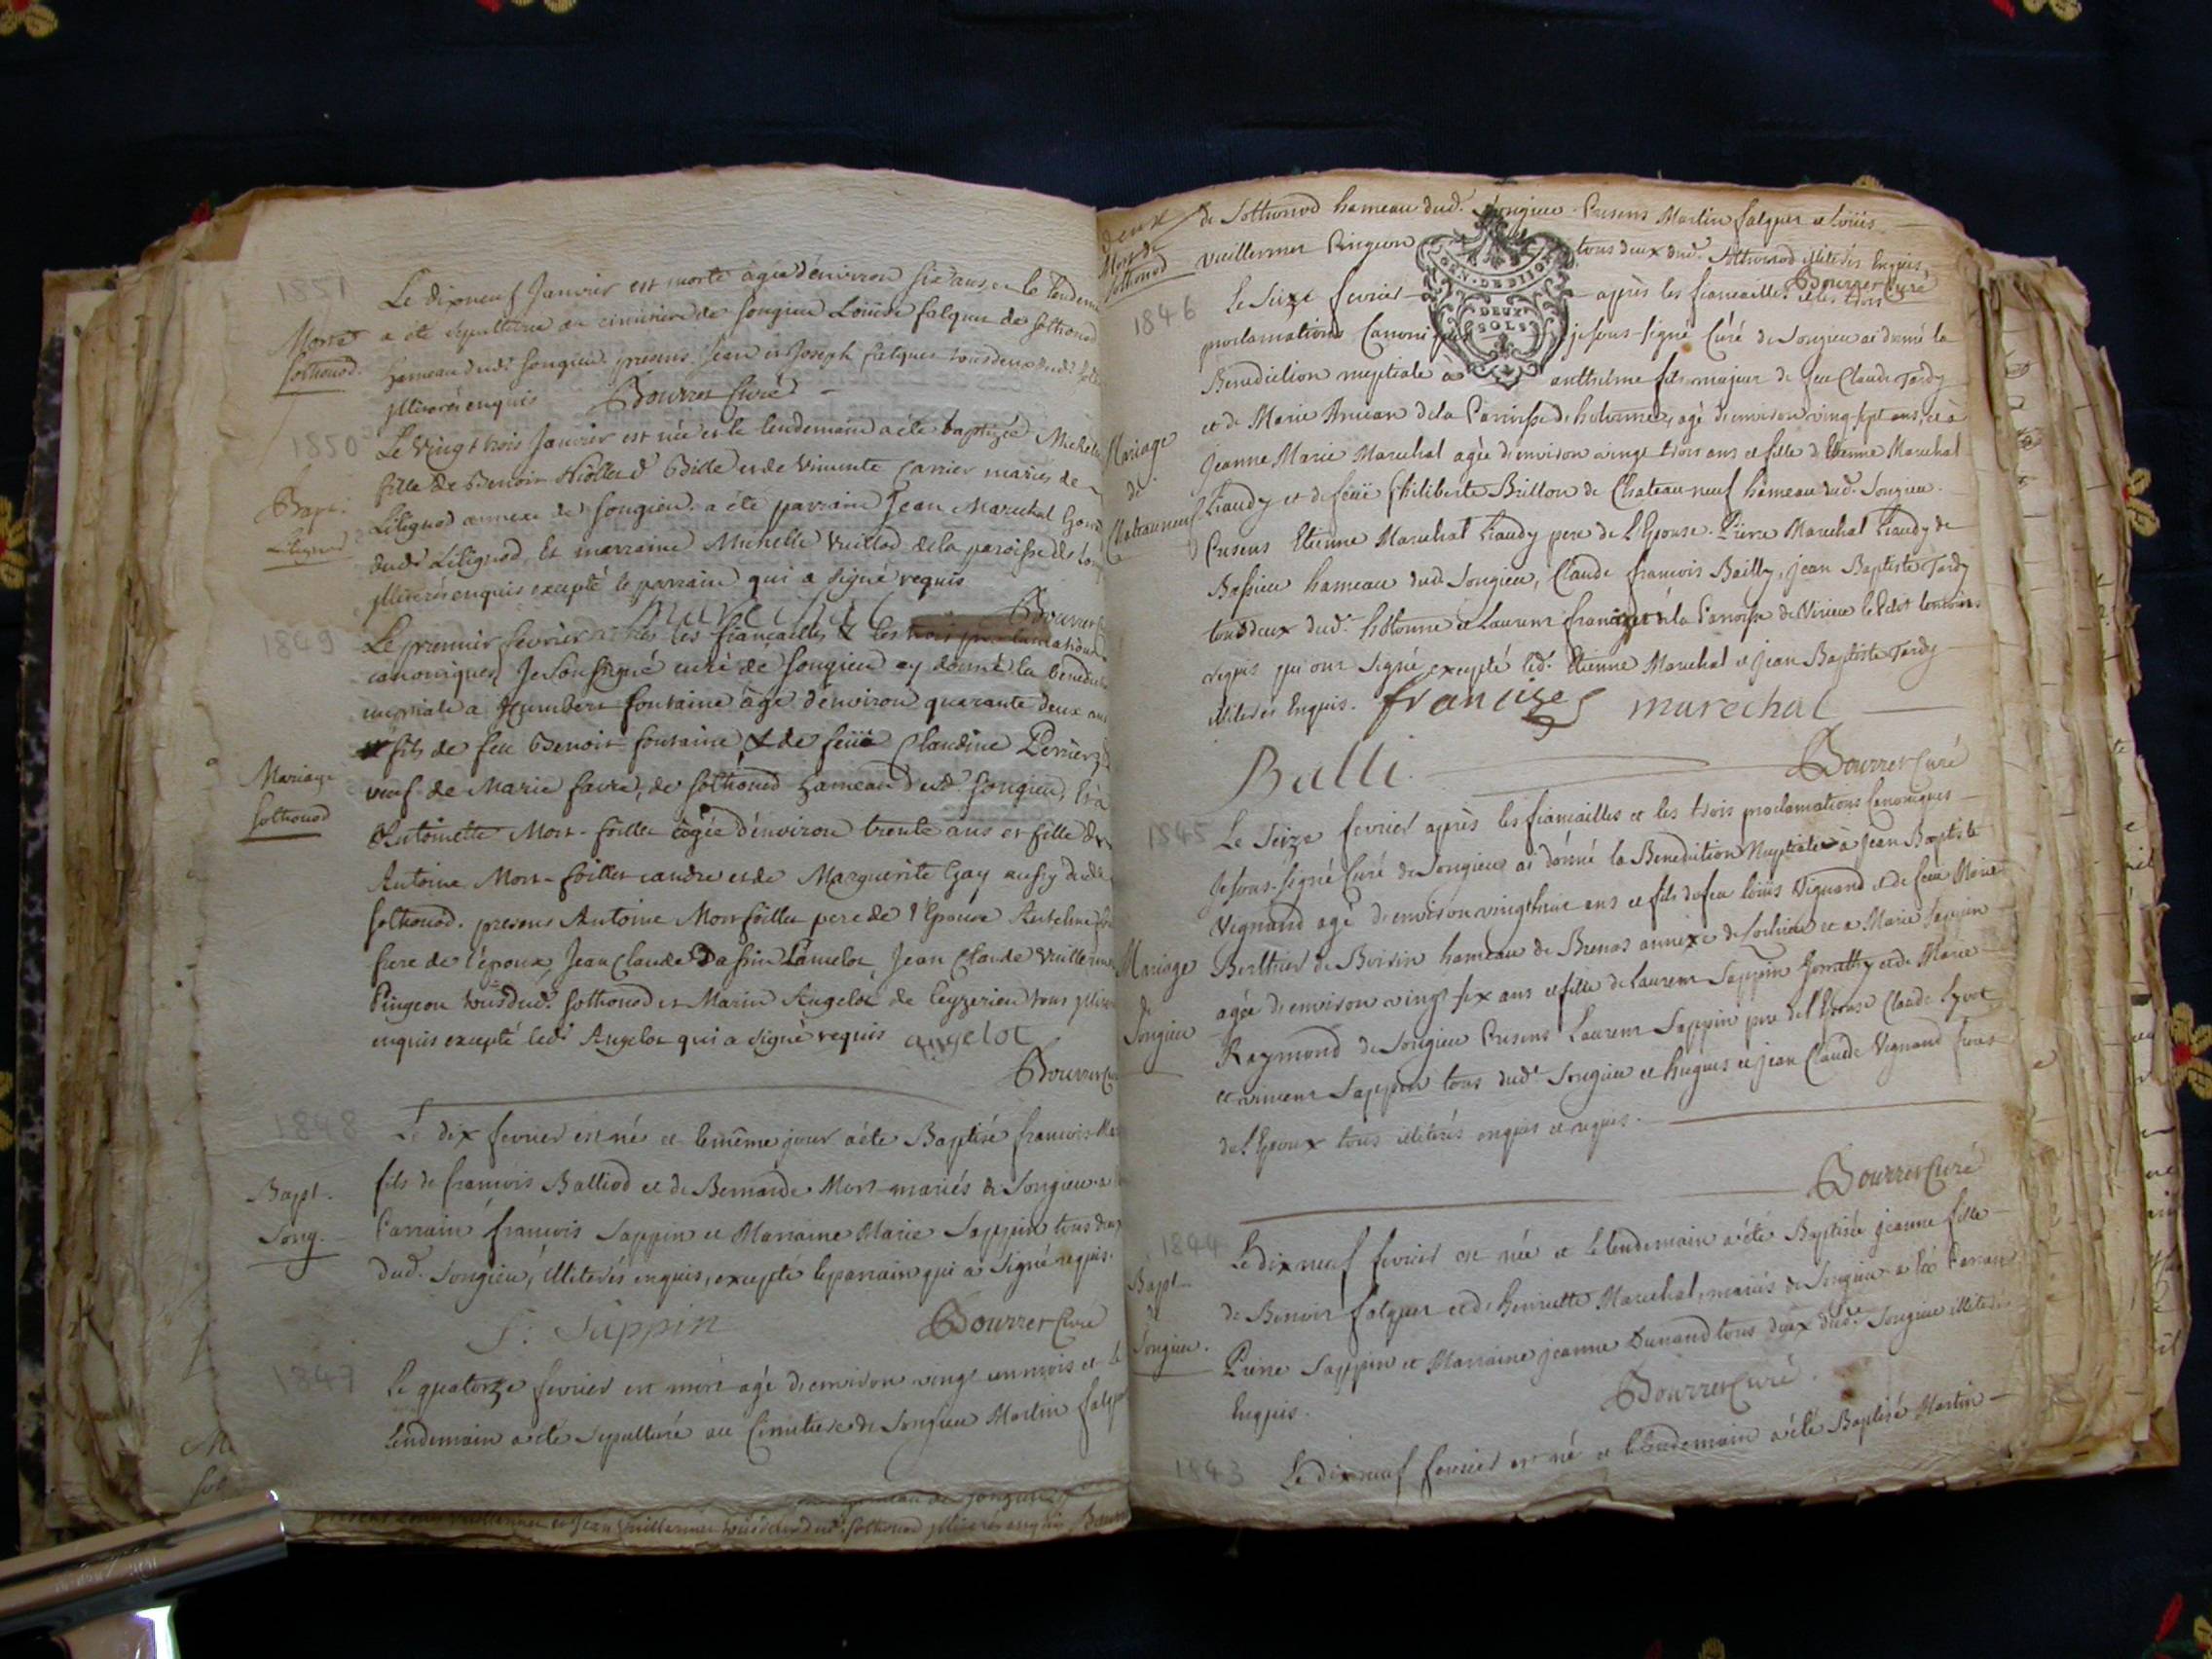 1851
Le dixneuf Janvier est morte agée d'environ six ans, et le lendem
Morte a été sepulturée au cimitière de songieu Loüise falquet de sothonod
sothonod. hameau dud. songieu. presens Jean et Joseph falquet tous deux dud.
illiterés enquis Bourret Curé
1850 Le vingt trois Janvier est née et le lendemain a été baptizée Michel
fille de Benoit d'Bille et de vincente Carrier mariés de
Bapt. Litignod annexe de songieu. a été parrain Jean Marechal
Litignod dud. Litignod. Et marraine Michelle Vuillod de la paroisse de
illiterés enquis excepté le parrain qui a signé requis
marechal Bourret
1849 Le premier fevrier après les fiancailles & les trois proclamations
canoniques, Je soussigné curé de songieu ay donné la benedict
nuptiale a Humbert fontaine âgé d'environ quarante deux ans
fils de feu Benoit fontaine & de feüe Claudine Perrier,
Mariage veuf de Marie favre, de sothonod hameau dud. songieu, Et a
sothonod Antoinette Mort-foillet âgée d'environ trente ans et fille de
Antoine Mort-foillet et de Marguerite Gay aussy dud.
sothonod. presens Antoine Mort foillet pere de l'Epouse Antelme
frere de l'époux, Jean Claude Lancelot, Jean Claude Vuillerme
Pingeon tous dud. sothonod et Marin Angelot de tous
enquis excepté led. Angelot qui a signé requis angelot
Bourret Cu
1848 Le dix fevrier est né et le même jour a été Baptisé francois
Bapt. fils de francois Balliod et de Bernarde Mort mariés de Songieu a
Song. Parrain francois Sappin et Marraine Marie Sappin tous deux
dud. Songieu, illiterés enquis, excepté le parrain qui a signé requis.
f. Sappin Bourret Curé
1847 Le quatorze fevrier est mort agé d'environ vingt un mois et le
lendemain a été sepulturé au Cimitiere de Songieu Martin falqu
deux de Sothonod hameau dud. Songieu. Presens Martin falquet et Loüis
Mort de Vuillermet Pingeon tous deux dud. Sothonod illiterés Enquis,
sothonod Bourret Curé
GEN. DE DIJON
DEUX
SOLS
1846 Le Seize fevrier après les fiancailles et les trois
proclamations Canoniques je sous-signé Curé de Songieu ai donné la
Benediction nuptiale à anthelme fils majeur de feu Claude Tardy
et de Marie de la Parroisse d'hotonne, agé d'environ vingt sept ans, et à
Mariage Jeanne Marie Marechal agée d'environ vingt trois ans et fille d'Etienne Marechal
de Liaudy et de feüe Philiberte Brillon de Chateauneuf hameau dud. Songieu.
Chateauneuf Presens Etienne Marechal Liaudy pere de l'Epouse. Pierre Marechal Liaudy de
Bassieu hameau dud. Songieu, Claude francois Bailly, jean Baptiste Tardy
tous deux dud. hotonne et Laurent francizet de la Parroisse de Virieu le Petit
requis qui ont signé excepté led. Etienne Marechal et Jean Baptiste Tardy
illiterés Enquis. francizet marechal
Balli Bourret Curé
1845 Le Seize fevrier après les fiancailles et les trois proclamations Canoniques
Je sous-signé Curé de Songieu ai donné la Benediction Nuptiale à Jean Baptiste
Vignand agé d'environ vingt huit ans et fils de feu loüis Vignand et de feüe Marie
Mariage Berthier de Boisin hameau de Brenas annexe de Lochieu et a Marie Sappin
de agée d'environ vingt six ans et fille de Laurent Sappin et de Marie
Songieu Raymond de Songieu Presens Laurent Sappin pere de l'Epouse Claude
et vincent Sappin tous dud. Songieu et hugues et jean Claude Vignand freres
de l'Epoux tous illiterés enquis et requis.
Bourret Curé
1844 Le dixneuf fevrier est née et le lendemain a été Baptisée jeanne fille
Bapt. de Benoit falquet et de henriette Marechal mariés de Songieu a été Parrain
de Pierre Sappin et Marraine jeanne Dunand tous deux dud. Songieu illiterés
Songieu. Enquis. Bourret Curé.
1843 Le dixneuf fevrier est né et le lendemain a été Baptisé Martin